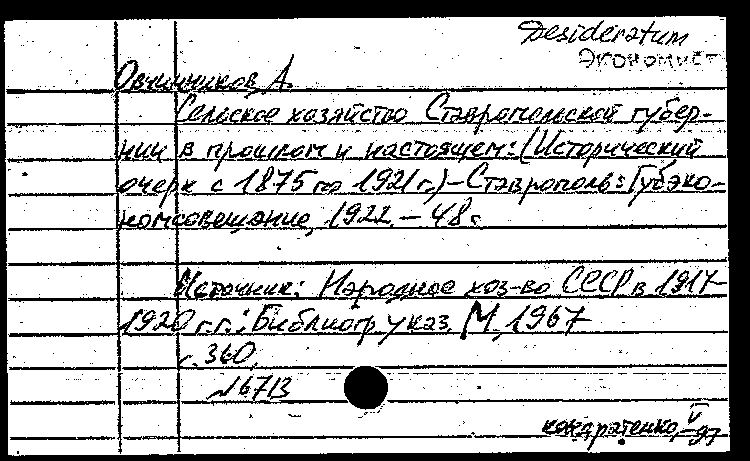 Desideratum
Экономист
Овчинников, А.
Сельское хозяйство Ставропольской губер-
нии в прошлом и настоящем: (Исторический
очерк с 1875 по 1921 г.) - Ставрополь: Губэко-
номсовещание, 1922. - 48 с.
Источник: Народное хоз-во СССР в 1917-
1920 г.г.: Библиогр. указ. М., 1967
с. 360,
№6713
Кондратенко, V-97